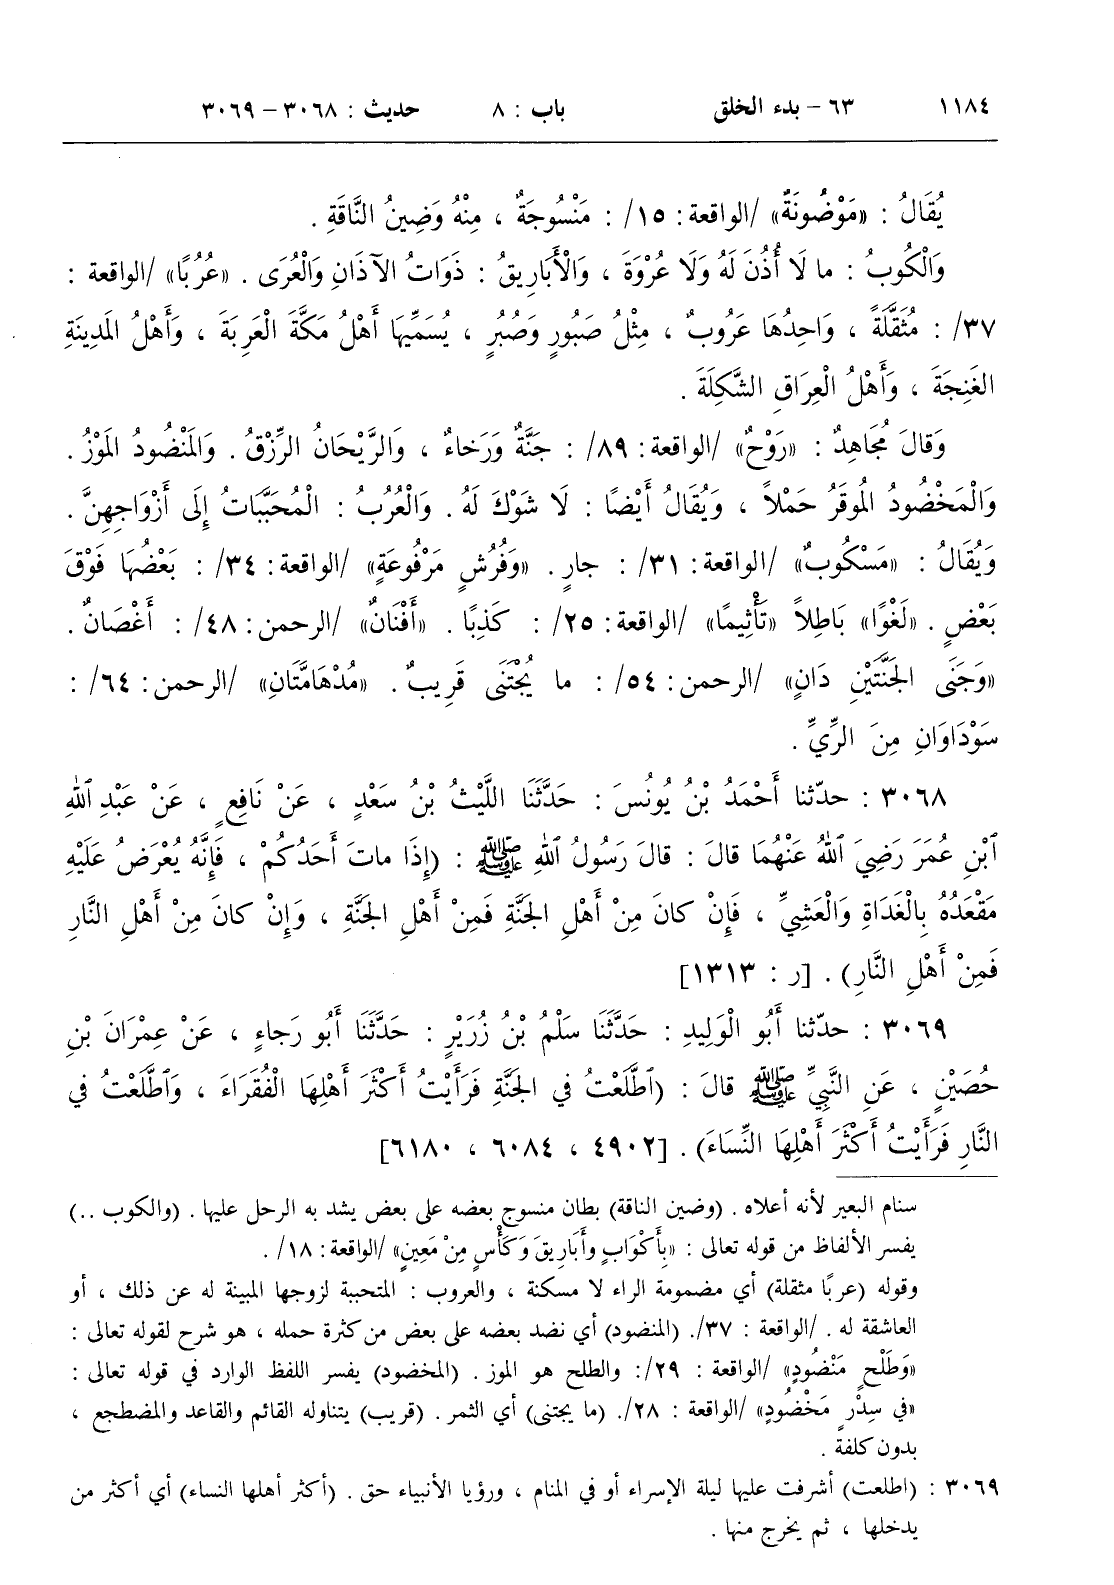 ١١٨٤ ٦٣ - بدء الخلق باب : ٨ حديث : ٣٠٦٨ - ٣٠٦٩
يُقَالُ : «مَوْضُونَةٌ» /الواقعة: ١٥/ : مَنْسُوجَةٌ ، مِنْهُ وَضِينُ النَّاقَةِ .
وَالْكُوبُ : ما لَا أُذُنَ لَهُ وَلَا عُرْوَةَ ، وَالْأَبَارِيقُ : ذَوَاتُ الآذَانِ وَالْعُرَى . «عُرُبًا» /الواقعة :
٣٧/ : مُثَقَّلَةً ، وَاحِدُهَا عَرُوبٌ ، مِثْلُ صَبُورٍ وَصُبُرٍ ، يُسَمِّيهَا أَهْلُ مَكَّةَ الْعَرِبَةَ ، وَأَهْلُ المَدِينَةِ
الغَنِجَةَ ، وَأَهْلُ الْعِرَاقِ الشَّكِلَةَ .
وَقالَ مُجَاهِدٌ : «رَوْحٌ» /الواقعة: ٨٩/ : جَنَّةٌ وَرَخاءٌ ، وَالرَّيْحَانُ الرِّزْقُ. وَالمَنْضُودُ المَوْزُ.
وَالْمَخْضُودُ المُوقَرُ حَمْلاً ، وَيُقَالُ أَيْضًا : لَا شَوْكَ لَهُ. وَالْعُرُبُ : الْمُحَبَّبَاتُ إِلَى أَزْوَاجِهِنَّ .
وَيُقَالُ : «مَسْكُوبٌ» /الواقعة: ٣١/ : جارٍ. «وَفُرُشٍ مَرْفُوعَةٍ» /الواقعة: ٣٤/ : بَعْضُهَا فَوْقَ
بَعْضٍ . «لَغْوًا» بَاطِلاً «تَأْثِيمًا» /الواقعة: ٢٥/ : كَذِبًا. «أَفْنَانٌ» /الرحمن: ٤٨/ : أَغْصَانٌ.
«وَجَنَى الجَنَّتَيْنِ دَانٍ» /الرحمن: ٥٤/ : ما يُجْتَنَى قَرِيبٌ. «مُدْهَامَّتَانِ» /الرحمن: ٦٤/ :
سَوْدَاوَانِ مِنَ الرِّيِّ .
٣٠٦٨ : حدّثنا أَحْمَدُ بْنُ يُونُسَ : حَدَّثَنَا اللَّيْثُ بْنُ سَعْدٍ ، عَنْ نَافِعٍ ، عَنْ عَبْدِ ٱللهِ
ٱبْنِ عُمَرَ رَضِيَ ٱللهُ عَنْهُمَا قالَ : قالَ رَسُولُ ٱللهِ ﷺ : (إِذَا ماتَ أَحَدُكُمْ ، فَإِنَّهُ يُعْرَضُ عَلَيْهِ
مَقْعَدُهُ بِالْغَدَاةِ وَالْعَشِيِّ ، فَإِنْ كانَ مِنْ أَهْلِ الجَنَّةِ فَمِنْ أَهْلِ الجَنَّةِ ، وَإِنْ كانَ مِنْ أَهْلِ النَّارِ
فَمِنْ أَهْلِ النَّارِ) . [ر : ١٣١٣]
٣٠٦٩ : حدّثنا أَبُو الْوَلِيدِ : حَدَّثَنَا سَلْمُ بْنُ زُرَيْرٍ : حَدَّثَنَا أَبُو رَجاءٍ ، عَنْ عِمْرَانَ بْنِ
حُصَيْنٍ ، عَنِ النَّبِيِّ ﷺ قالَ : (ٱطَّلَعْتُ في الجَنَّةِ فَرَأَيْتُ أَكْثَرَ أَهْلِهَا الْفُقَرَاءَ ، وَٱطَّلَعْتُ في
النَّارِ فَرَأَيْتُ أَكْثَرَ أَهْلِهَا النِّسَاءَ) . [٤٩٠٢ ، ٦٠٨٤ ، ٦١٨٠]
سنام البعير لأنه أعلاه . (وضين الناقة) بطان منسوج بعضه على بعض يشد به الرحل عليها . (والكوب ..)
يفسر الألفاظ من قوله تعالى : «بِأَكْوَابٍ وأَبَارِيقَ وَكَأْسٍ مِنْ مَعِينٍ» /الواقعة: ١٨/ .
وقوله (عربًا مثقلة) أي مضمومة الراء لا مسكنة ، والعروب : المتحببة لزوجها المبينة له عن ذلك ، أو
العاشقة له . /الواقعة : ٣٧/. (المنضود) أي نضد بعضه على بعض من كثرة حمله ، هو شرح لقوله تعالى :
«وَطَلْحٍ مَنْضُودٍ» /الواقعة : ٢٩/: والطلح هو الموز . (المخضود) يفسر اللفظ الوارد في قوله تعالى :
«في سِدْرٍ مَخْضُودٍ» /الواقعة : ٢٨/. (ما يجتنى) أي الثمر . (قريب) يتناوله القائم والقاعد والمضطجع ،
بدون كلفة .
٣٠٦٩ : (اطلعت) أشرفت عليها ليلة الإسراء أو في المنام ، ورؤيا الأنبياء حق . (أكثر أهلها النساء) أي أكثر من
يدخلها ، ثم يخرج منها .